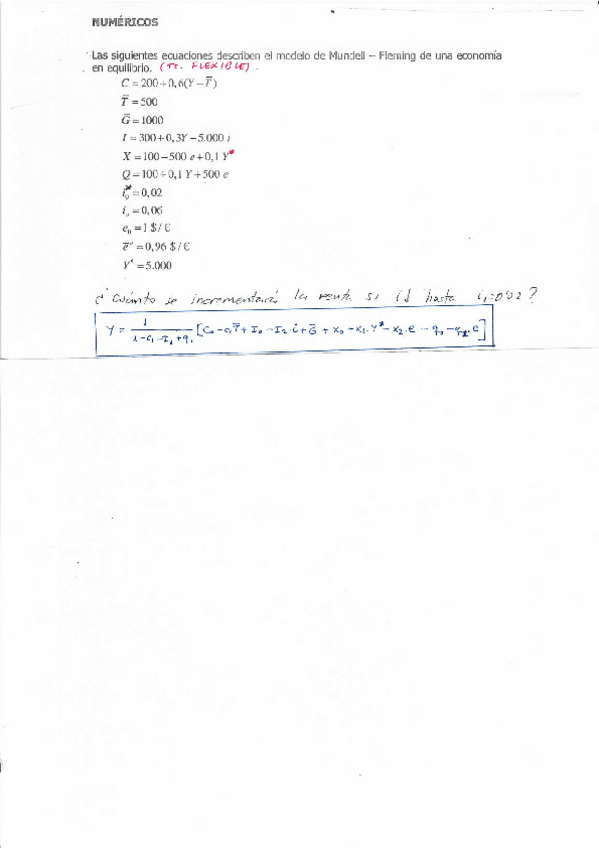 NUMÉRICOS
Las siguientes ecuaciones describen el modelo de Mundell – Fleming de una economía
en equilibrio. (TC. FLEXIBLE)
C = 200 + 0,6(Y – T̅)
T̅ = 500
G̅ = 1000
I = 300 + 0,3Y – 5.000 i
X = 100 – 500 e + 0,1 Y*
Q = 100 + 0,1 Y + 500 e
i₀* = 0,02
i₀ = 0,06
e₀ = 1 $/€
e̅ᵉ = 0,96 $/€
Y* = 5.000
¿Cuánto se incrementará la renta si i↓ hasta i₁=0'02?
Y = 1/(1-C₁-I₁+q₁) [C₀-C₁T̅+I₀-I₂i+G̅+X₀-X₁.Y*-X₂.e-q₀-q₂.e]